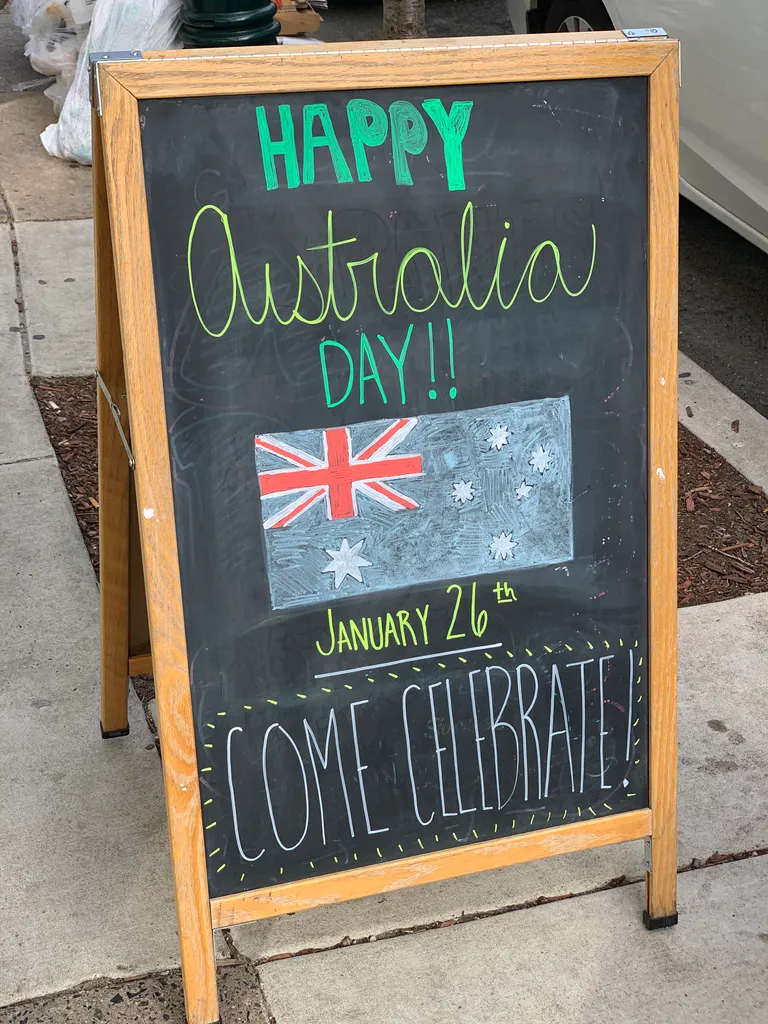 HAPPY
Australia
DAY!!
JANUARY 26th
COME CELEBRATE!